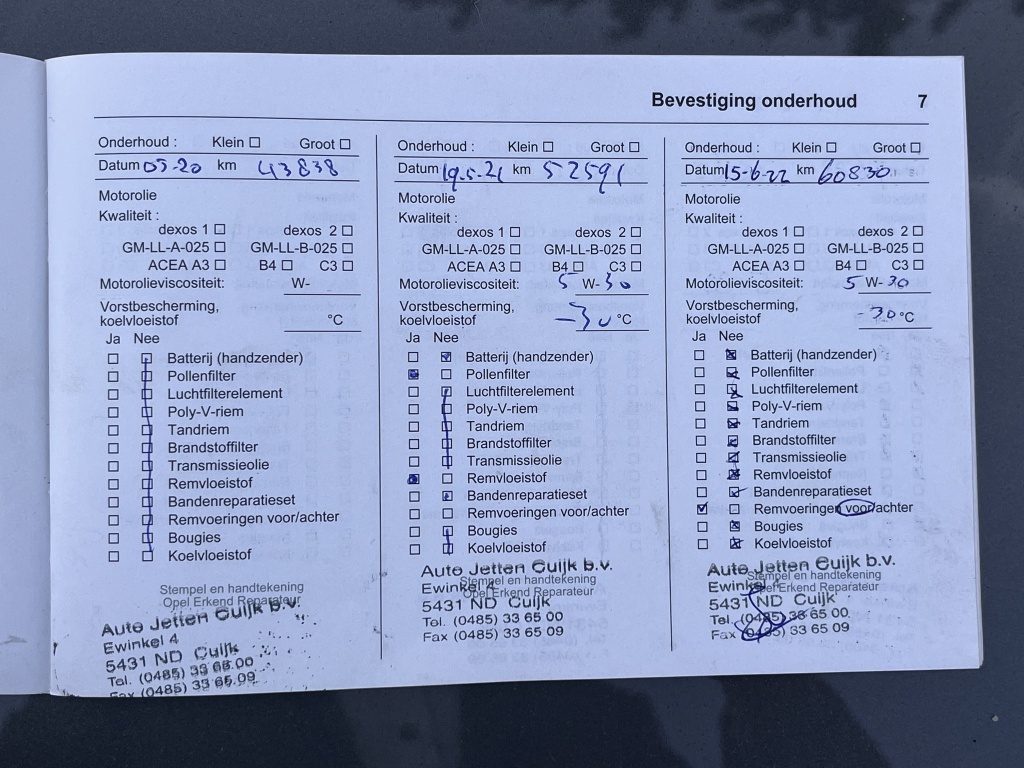 Bevestiging onderhoud 7
Onderhoud : Klein Groot
Datum 05-20 km 43838
Motorolie
Kwaliteit :
dexos 1 dexos 2
GM-LL-A-025 GM-LL-B-025
ACEA A3 B4 C3
Motorolieviscositeit: W-
Vorstbescherming,
koelvloeistof °C
Ja Nee
Batterij (handzender)
Pollenfilter
Luchtfilterelement
Poly-V-riem
Tandriem
Brandstoffilter
Transmissieolie
Remvloeistof
Bandenreparatieset
Remvoeringen voor/achter
Bougies
Koelvloeistof
Stempel en handtekening
Opel Erkend Reparateur
Auto Jetten Cuijk b.v.
Ewinkel 4
5431 ND Cuijk
Tel. (0485) 33 65 00
Fax (0485) 33 65 09
Onderhoud : Klein Groot
Datum 19-5-21 km 52591
Motorolie
Kwaliteit :
dexos 1 dexos 2
GM-LL-A-025 GM-LL-B-025
ACEA A3 B4 C3
Motorolieviscositeit: 5 W- 30
Vorstbescherming,
koelvloeistof -30 °C
Ja Nee
Batterij (handzender)
Pollenfilter
Luchtfilterelement
Poly-V-riem
Tandriem
Brandstoffilter
Transmissieolie
Remvloeistof
Bandenreparatieset
Remvoeringen voor/achter
Bougies
Koelvloeistof
Auto Jetten Cuijk b.v.
Stempel en handtekening
Ewinkel 4
Opel Erkend Reparateur
5431 ND Cuijk
Tel. (0485) 33 65 00
Fax (0485) 33 65 09
Onderhoud : Klein Groot
Datum 15-6-22 km 60830
Motorolie
Kwaliteit :
dexos 1 dexos 2
GM-LL-A-025 GM-LL-B-025
ACEA A3 B4 C3
Motorolieviscositeit: 5 W- 30
Vorstbescherming,
koelvloeistof -30 °C
Ja Nee
Batterij (handzender)
Pollenfilter
Luchtfilterelement
Poly-V-riem
Tandriem
Brandstoffilter
Transmissieolie
Remvloeistof
Bandenreparatieset
Remvoeringen voor/achter
Bougies
Koelvloeistof
Auto Jetten Cuijk b.v.
Stempel en handtekening
Ewinkel 4
Opel Erkend Reparateur
5431 ND Cuijk
Tel. (0485) 33 65 00
Fax (0485) 33 65 09